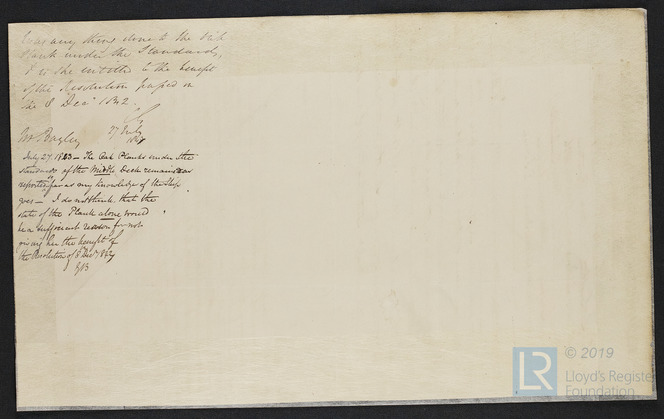 Was any thing done to the Oak
Plank under the Standards,
& is she entitled to the benefit
of the Resolution passed on
the 8 Decr 1842.
27 July
Mr Bayley
July 27. 1843 – The Oak Planks under the
standards of the Middle Deck remains as
reported far as my knowledge of the Ship
goes – I do not think that the
state of the Plank alone would
be a sufficient reason for not
giving her the benefit of
the Resolution of 8 Decr
LR
© 2019
Lloyd's Register
Foundation